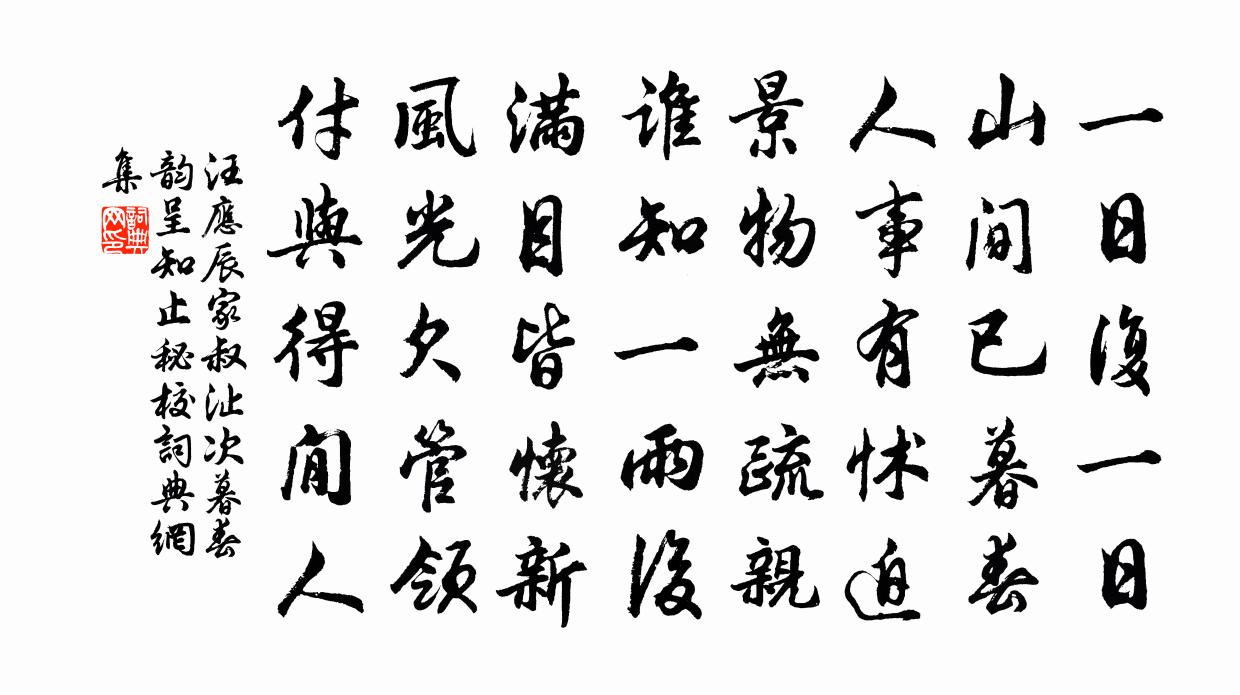 一日復一日
山間已暮春
人事有怵迫
景物無疏親
誰知一雨後
滿目皆懷新
風光欠管領
付與得閒人
汪應辰家叔沚次暮春
韵呈知止秘校詞典網
集
詞典
网印